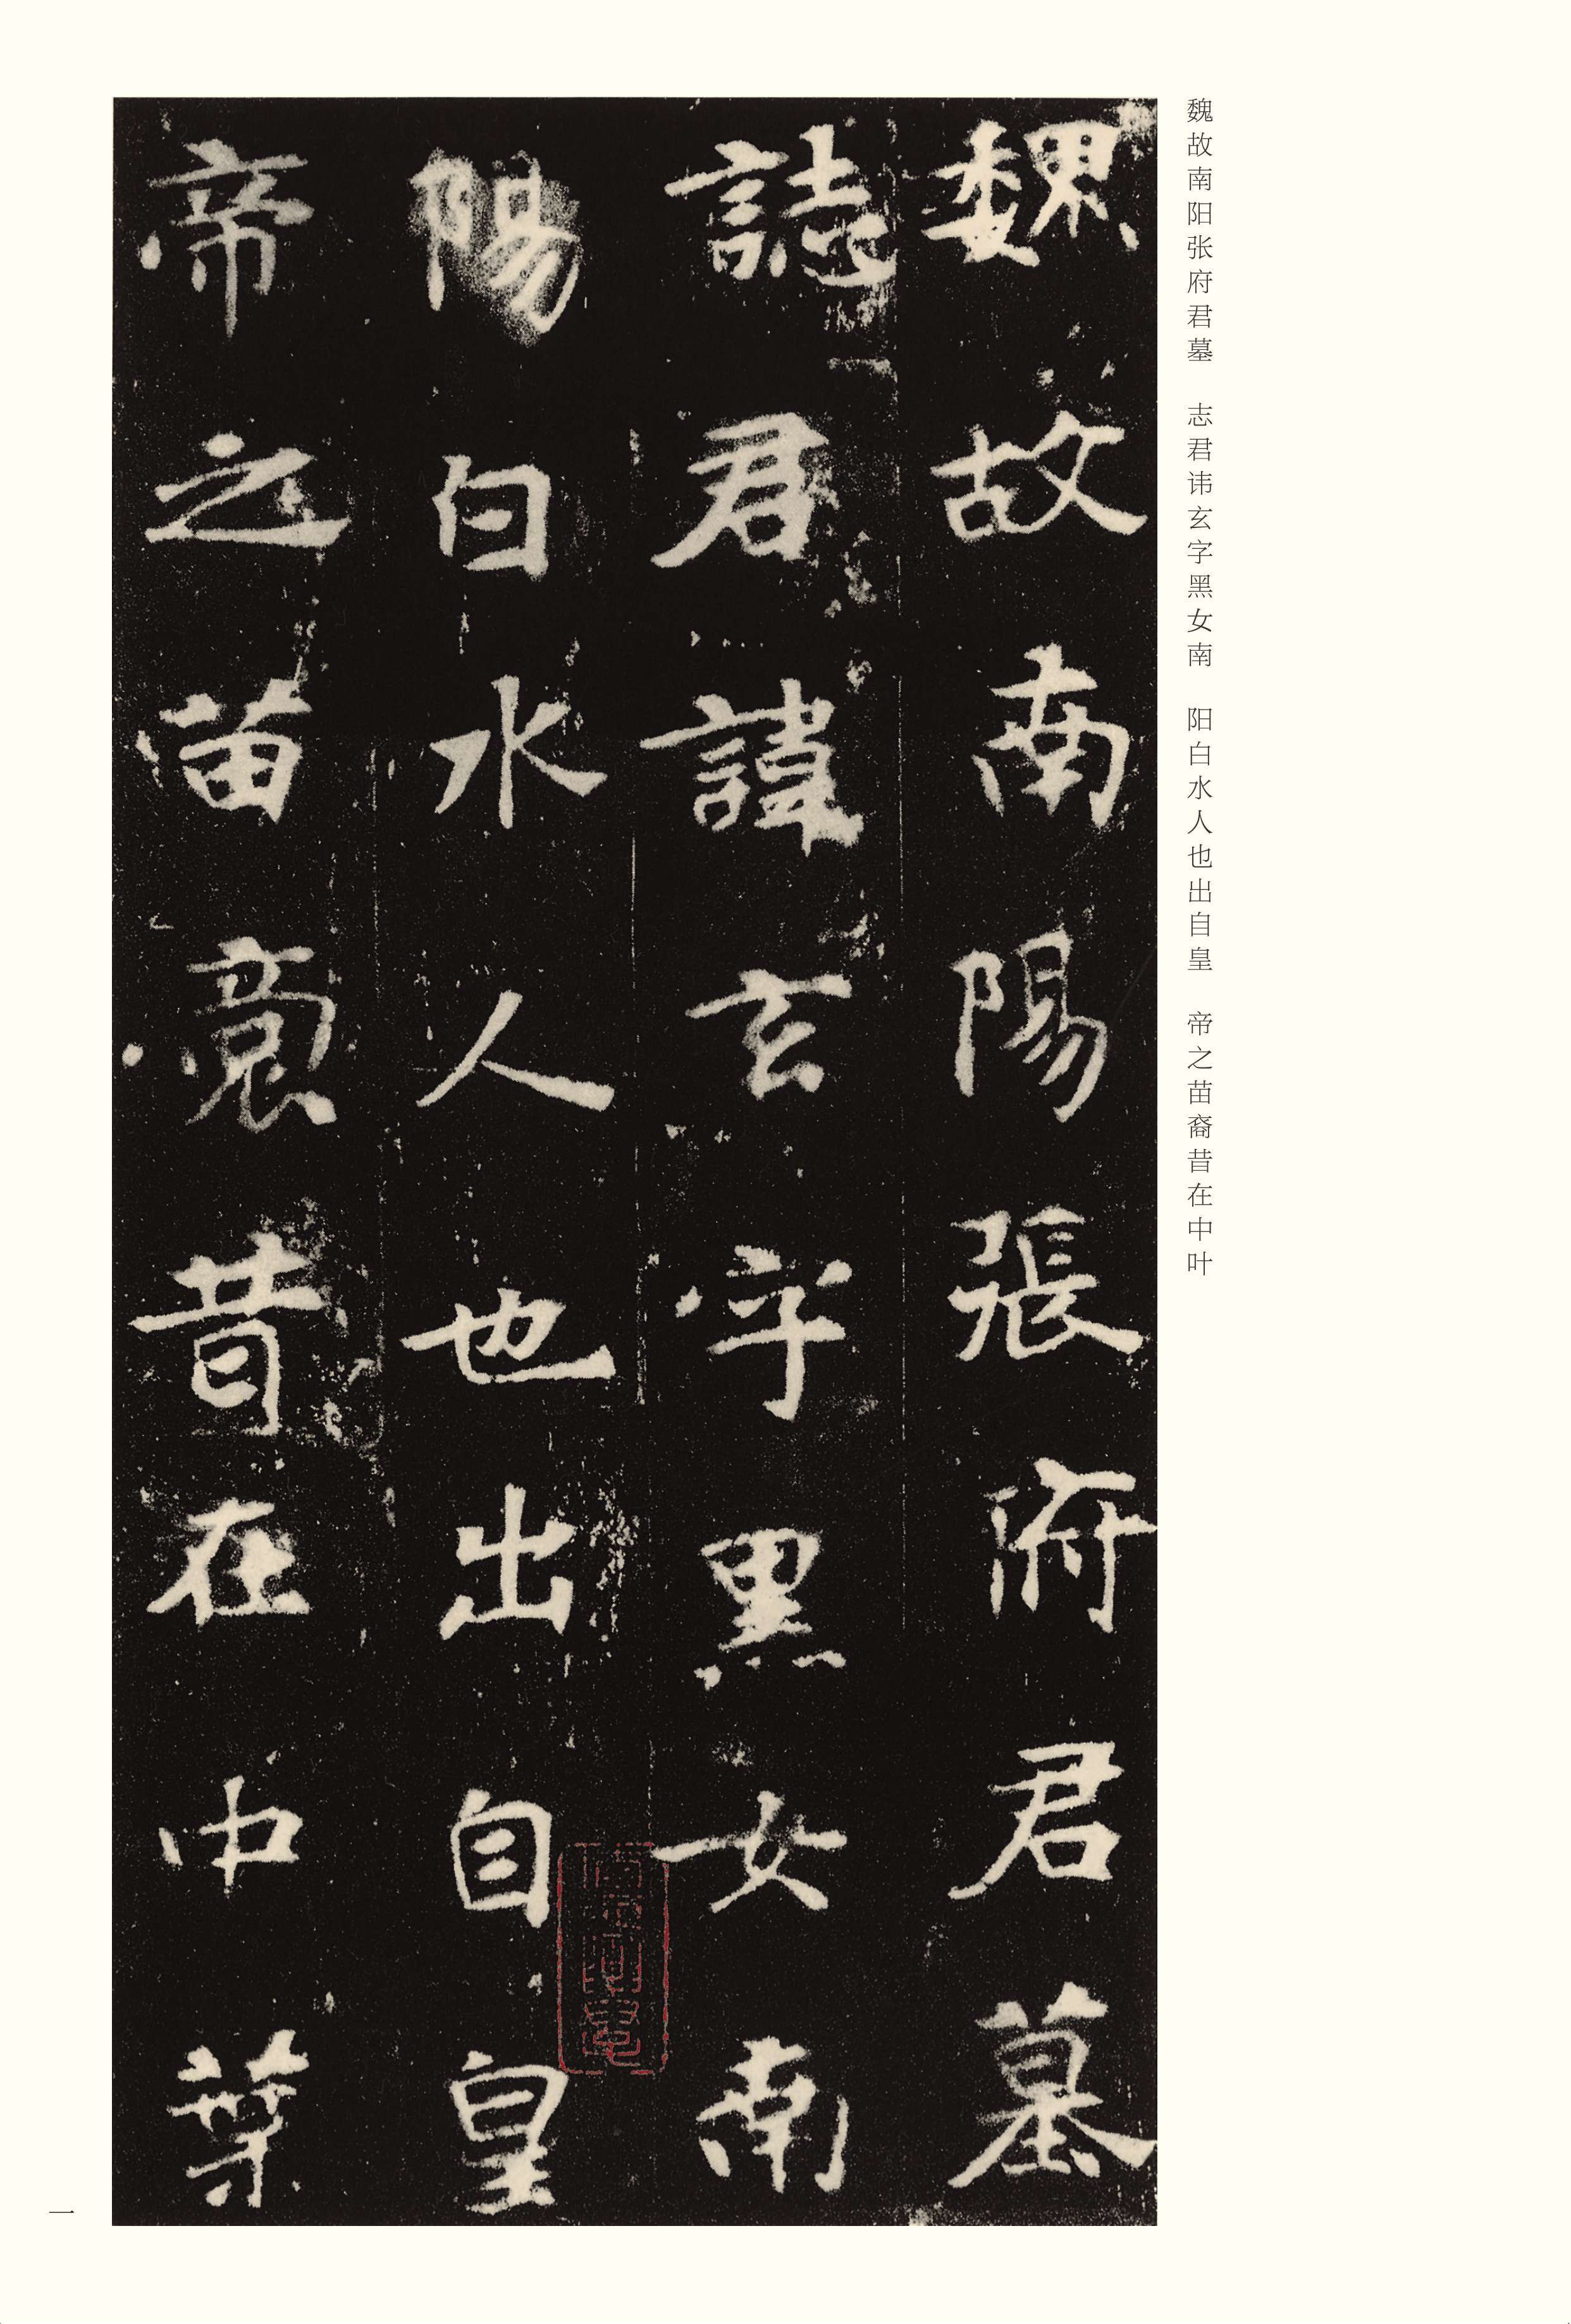 魏故南阳张府君墓　志君讳玄字黑女南　阳白水人也出自皇　帝之苗裔昔在中叶
魏故南陽張府君墓
誌君諱玄字黑女南
陽白水人也出自皇
帝之苗裔昔在中葉
一